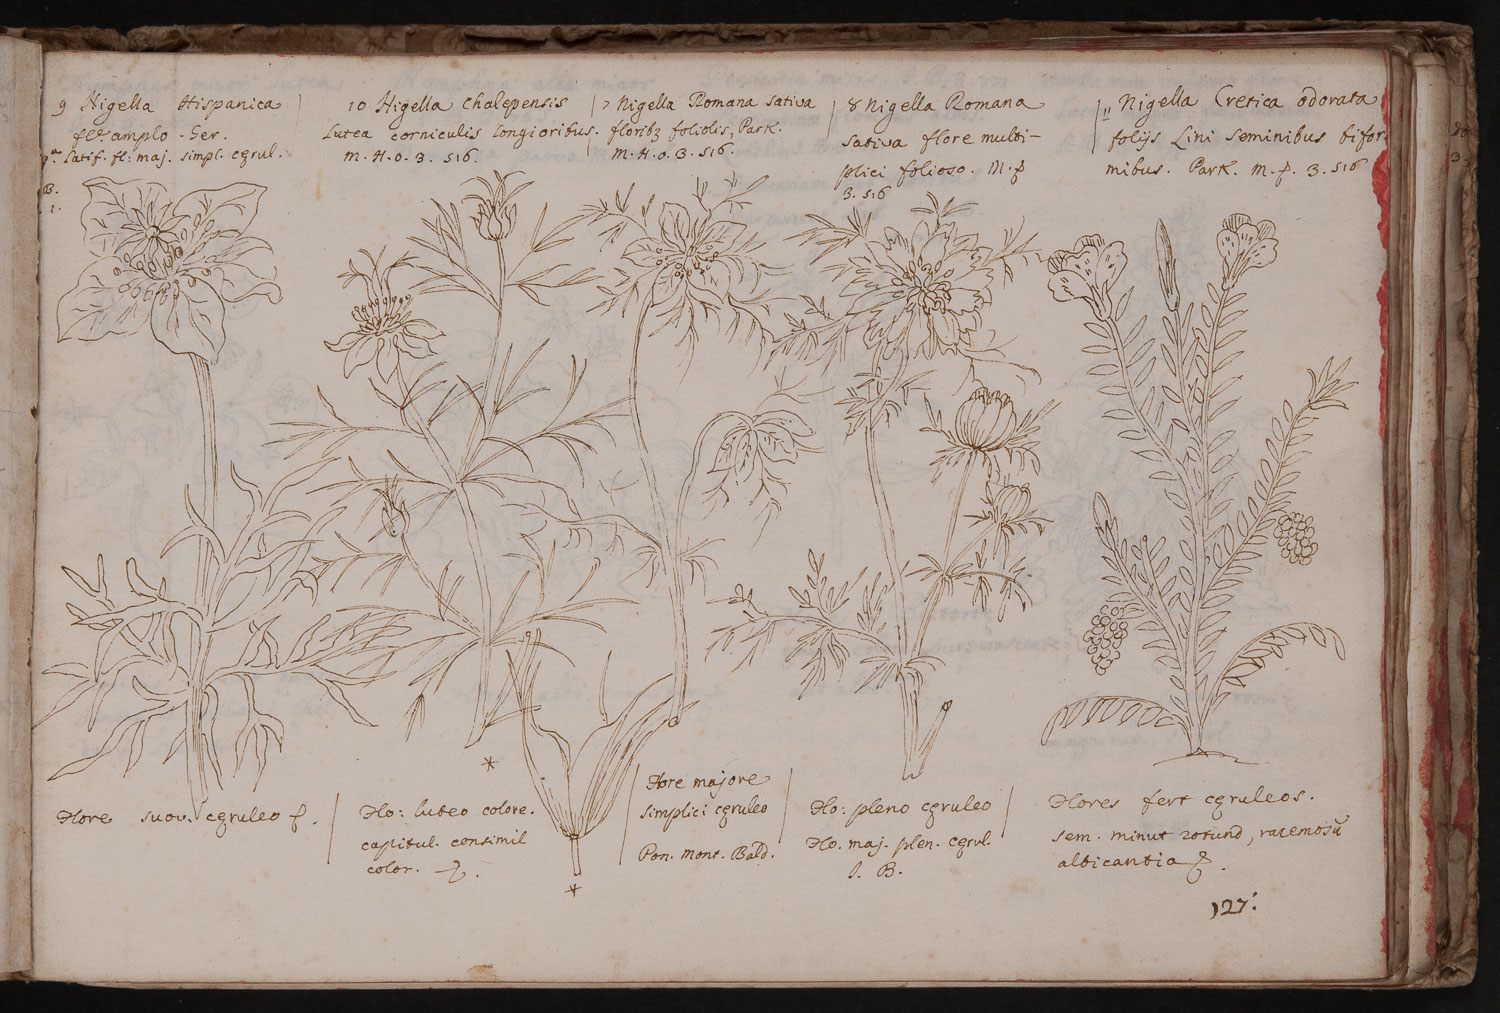 9 Nigella Hispanica
flo: amplo. Ger.
Latif. fl: maj. simpl. cęrul.
B.
1.
10 Nigella Chalepensis
Lutea corniculis longioribus.
M. H. o. 3. 516.
7 Nigella Romana sativa
floribz foliosis, Park.
M. H. o. 3. 516.
8 Nigella Romana
sativa flore multi-
plici folioso. M. p
3. 516
11 Nigella Cretica odorata
folijs Lini seminibus bifor
mibus. Park. M. p. 3. 516
Flore suav. cęruleo p.
Flo: luteo colore.
capitul. consimil
color.
Flore majore
simplici cęruleo
Pon. Mont. Bald.
Flo: pleno cęruleo
Flo. maj. plen. cęrul.
I. B.
Flores fert cęruleos.
sem. minut rotund, racemosū
albicantia
127.